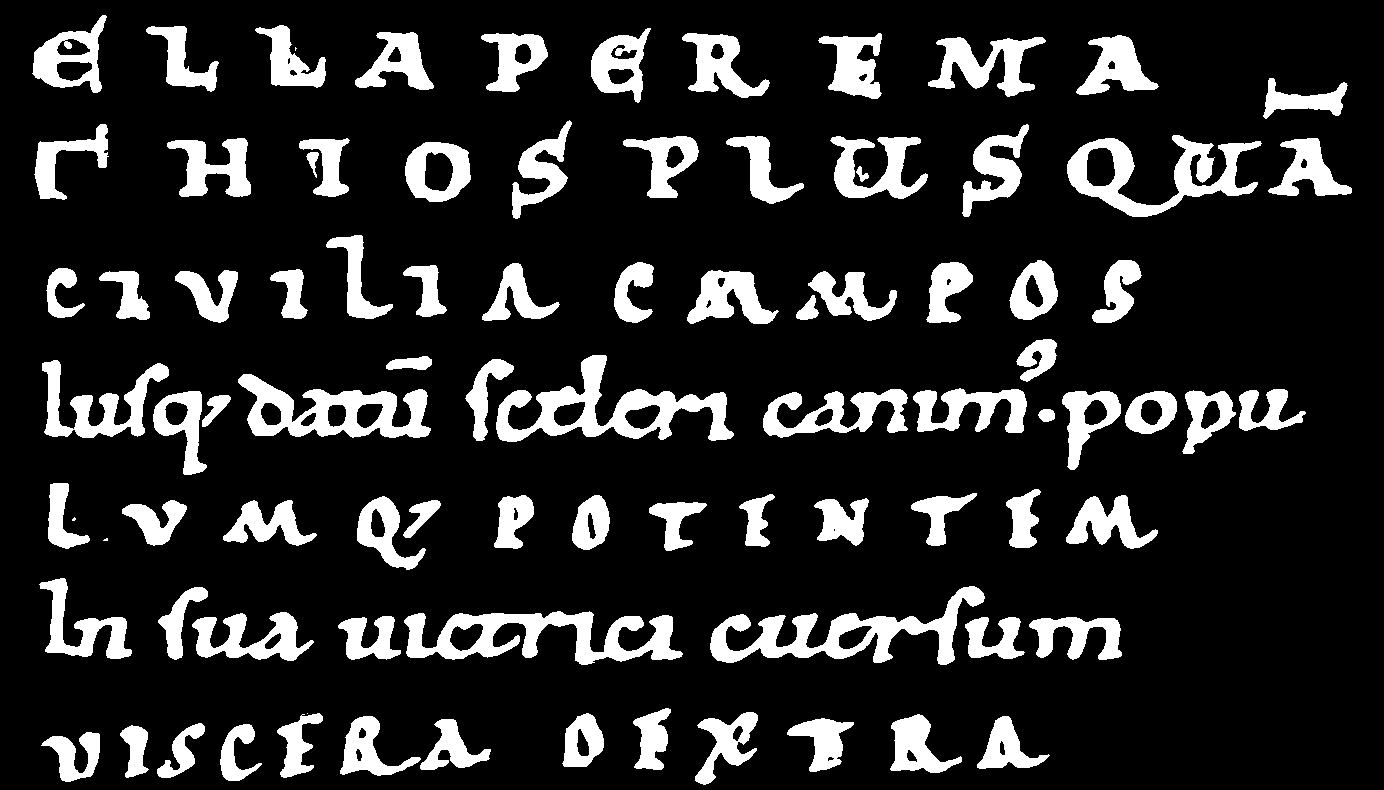 ELLAPEREMA
THIOSPLUSQUĀ
CIVILIA CAMPOS
Iusq; datū sceleri canimꝰ·popu
LVMQ; POTENTEM
In sua uictrici cuersum
VISCERA DEXTRA